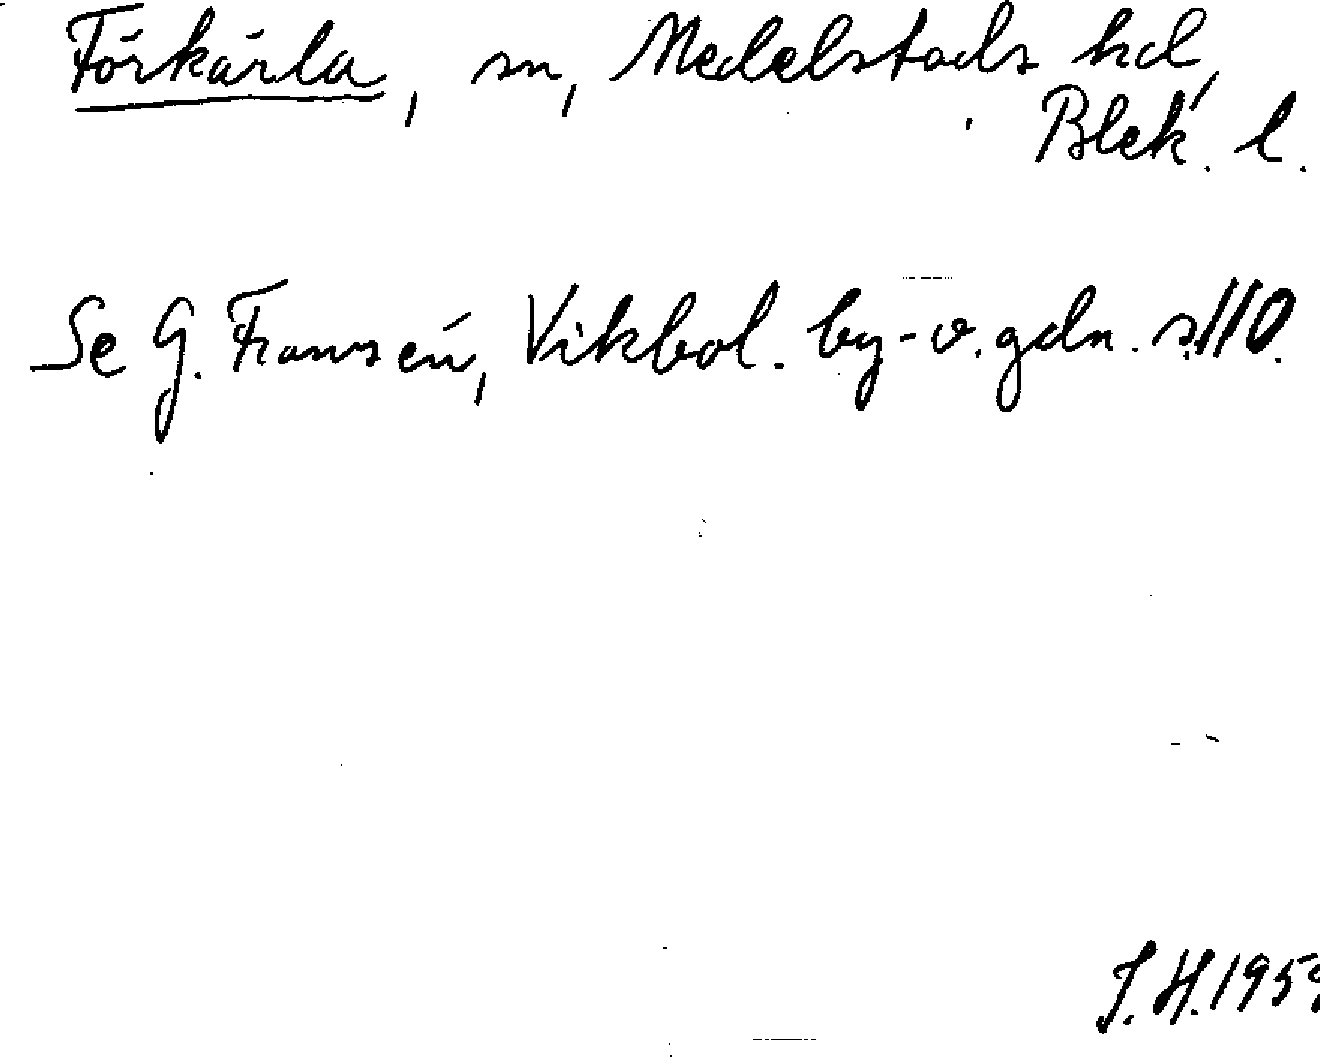 Förkärla, sn, Medelstads hd,
Blek. l.
Se G. Fransén, Vikbol. by- o. gdn. s. 110.
J. H. 1959